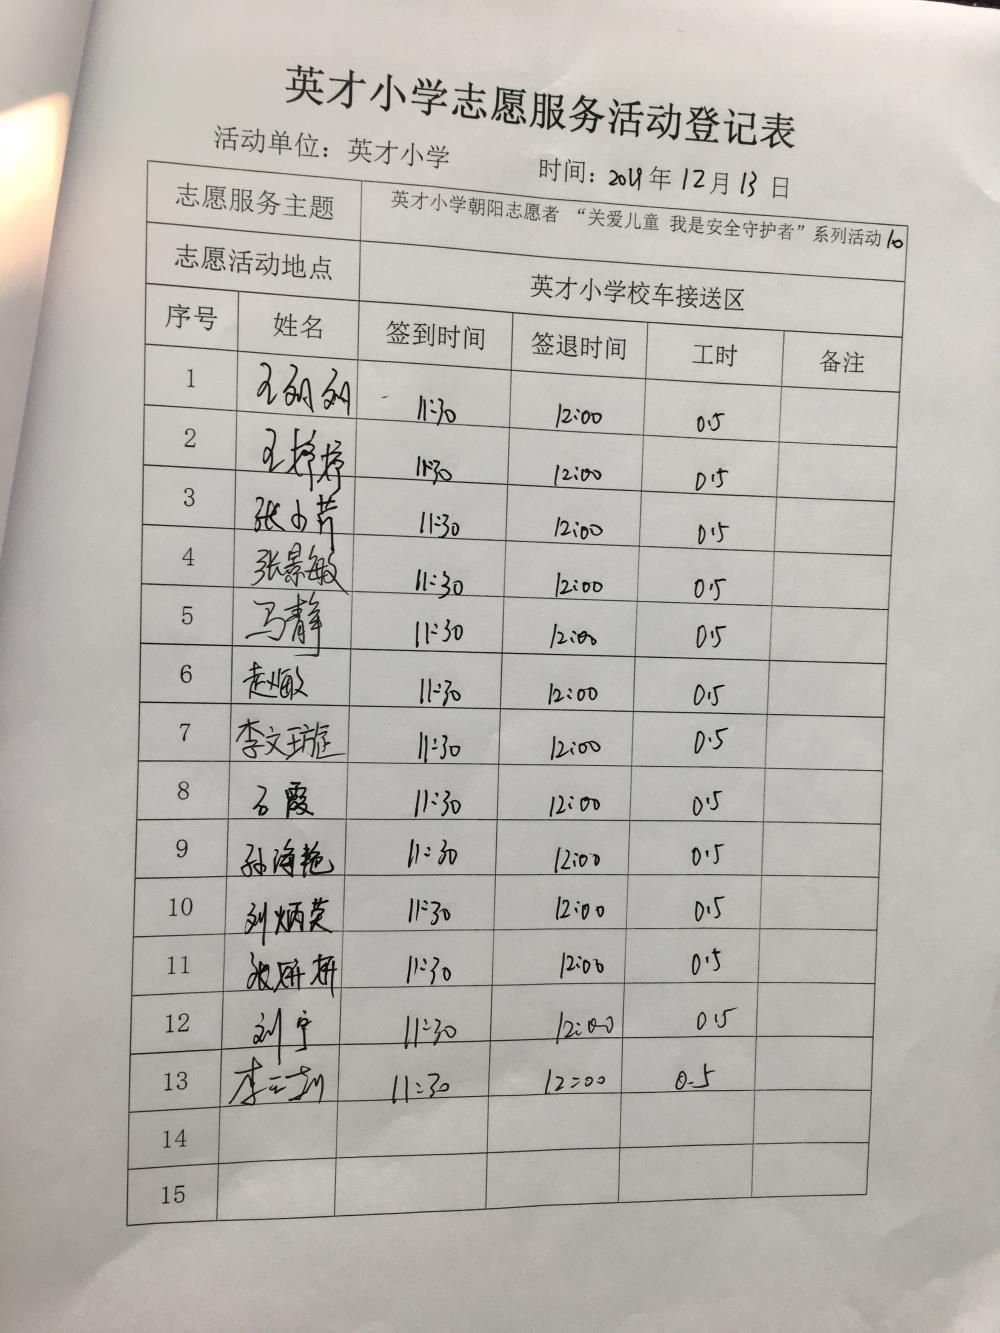 英才小学志愿服务活动登记表
活动单位：英才小学 时间：2019年12月13日
志愿服务主题 英才小学朝阳志愿者 “关爱儿童 我是安全守护者”系列活动10
志愿活动地点 英才小学校车接送区
序号 姓名 签到时间 签退时间 工时 备注
1 王 11:30 12:00 0.5
2 王婷婷 11:30 12:00 0.5
3 张小芹 11:30 12:00 0.5
4 张景敏 11:30 12:00 0.5
5 马静 11:30 12:00 0.5
6 赵敏 11:30 12:00 0.5
7 李文琁 11:30 12:00 0.5
8 石霞 11:30 12:00 0.5
9 孙海艳 11:30 12:00 0.5
10 刘炳英 11:30 12:00 0.5
11 张妍妍 11:30 12:00 0.5
12 刘宁 11:30 12:00 0.5
13 李 11:30 12:00 0.5
14
15